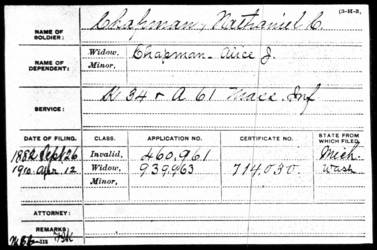 (3-M-8.)
NAME OF SOLDIER: Chapman, Nathaniel C.
NAME OF DEPENDENT: Widow, Chapman Alice J.
Minor,
SERVICE: K 34 & A 61 Mass. Inf
DATE OF FILING. CLASS. APPLICATION NO. CERTIFICATE NO. STATE FROM WHICH FILED.
1882 Sept 26 Invalid, 460.961 Mich.
1910 Apr. 12 Widow, 939,963 714,030. Wash
Minor,
ATTORNEY:
REMARKS: